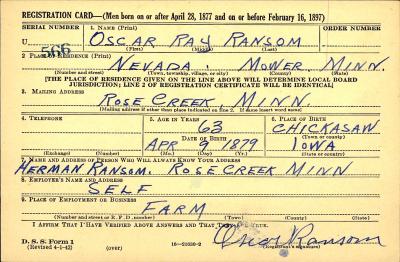 REGISTRATION CARD—(Men born on or after April 28, 1877 and on or before February 16, 1897)
SERIAL NUMBER 1. NAME (Print) ORDER NUMBER
U 566 OSCAR RAY RANSOM
(First) (Middle) (Last)
2. PLACE OF RESIDENCE (Print)
NEVADA, MOWER MINN.
(Number and street) (Town, township, village, or city) (County) (State)
[THE PLACE OF RESIDENCE GIVEN ON THE LINE ABOVE WILL DETERMINE LOCAL BOARD
JURISDICTION; LINE 2 OF REGISTRATION CERTIFICATE WILL BE IDENTICAL]
3. MAILING ADDRESS
ROSE CREEK MINN.
[Mailing address if other than place indicated on line 2. If same insert word same]
4. TELEPHONE 5. AGE IN YEARS 6. PLACE OF BIRTH
63 CHICKASAW
DATE OF BIRTH (Town or county)
APR 9 1879 IOWA
(Exchange) (Number) (Mo.) (Day) (Yr.) (State or country)
7. NAME AND ADDRESS OF PERSON WHO WILL ALWAYS KNOW YOUR ADDRESS
HERMAN RANSOM. ROSE CREEK MINN
8. EMPLOYER'S NAME AND ADDRESS
SELF
9. PLACE OF EMPLOYMENT OR BUSINESS
FARM
(Number and street or R. F. D. number) (Town) (County) (State)
I AFFIRM THAT I HAVE VERIFIED ABOVE ANSWERS AND THAT THEY ARE TRUE.
D. S. S. Form 1
(Revised 4-1-42) (over) 16—21630-2 Oscar Ransom